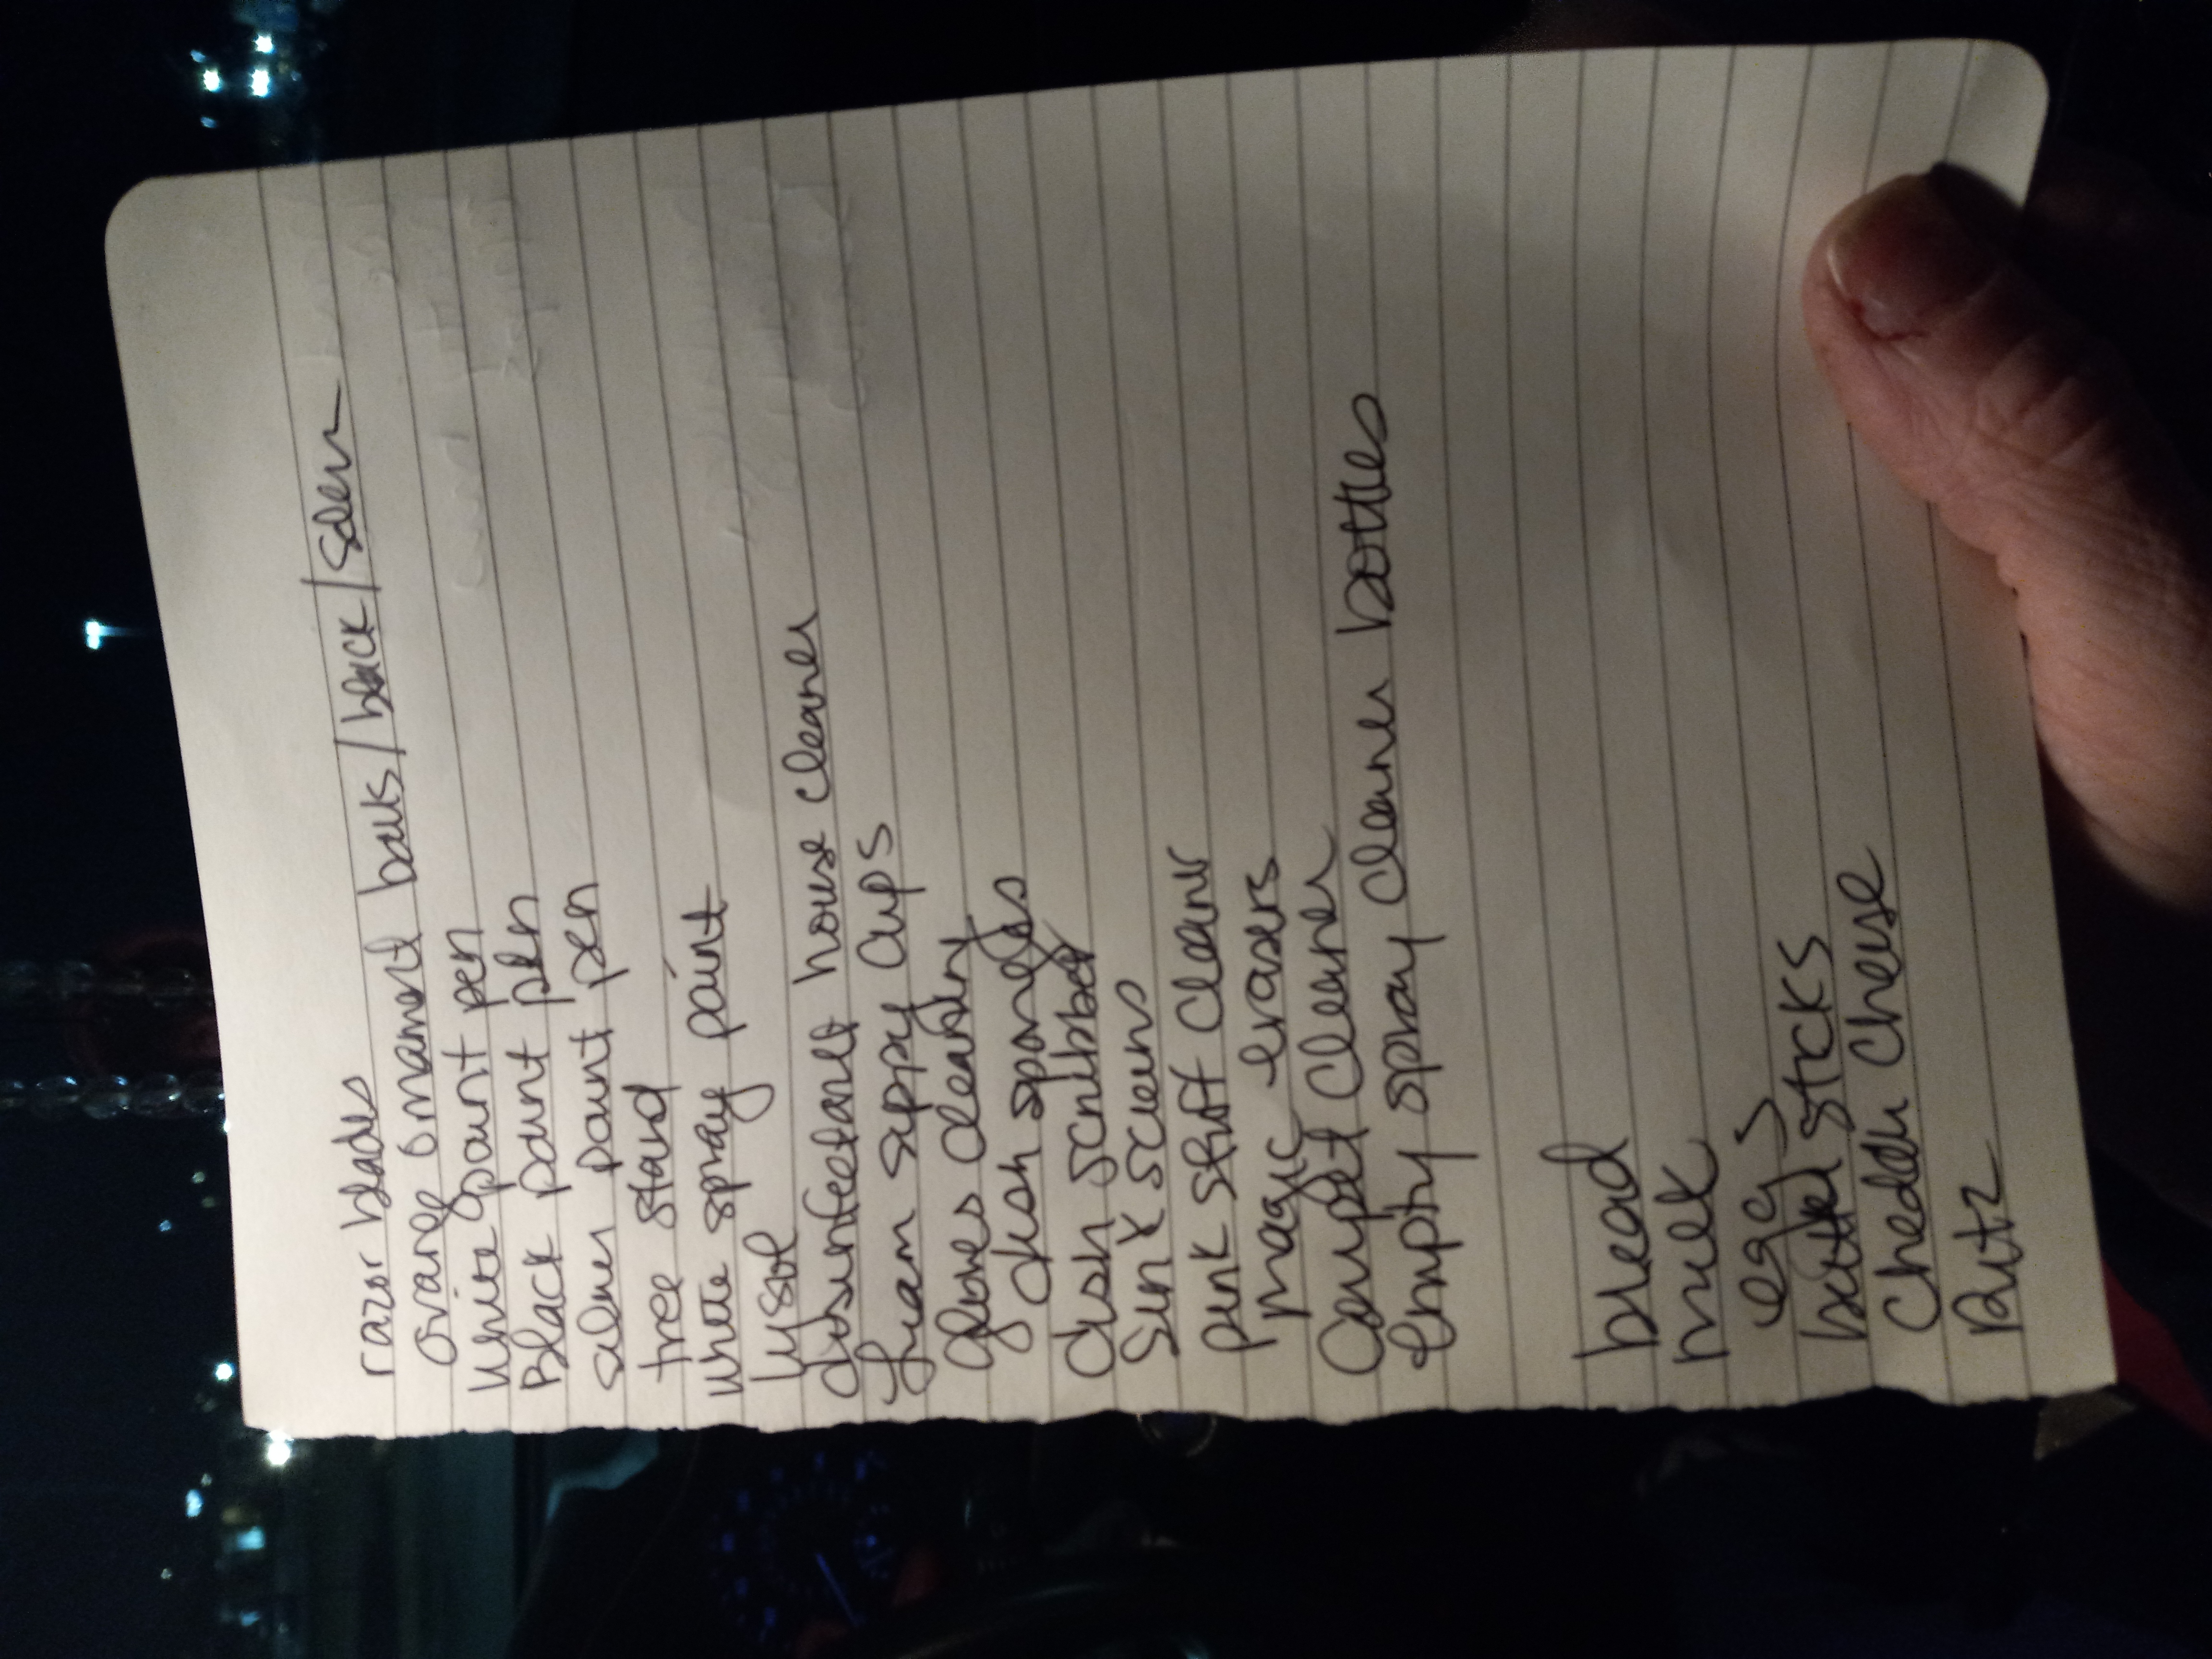 razor blades
orange ornament balls/black/silver
white paint pen
Black paint pen
silver paint pen
tree stand
white spray paint
Lysol
disinfectant house cleaner
foam sippy cups
gloves cleaning
dish sponges
dish scrubber
Sink screens
pink stuff cleaner
magic erasers
Carpet Cleaner
Empty spray cleaner bottles
bread
milk
eggs
butter sticks
Cheddar Cheese
Ritz